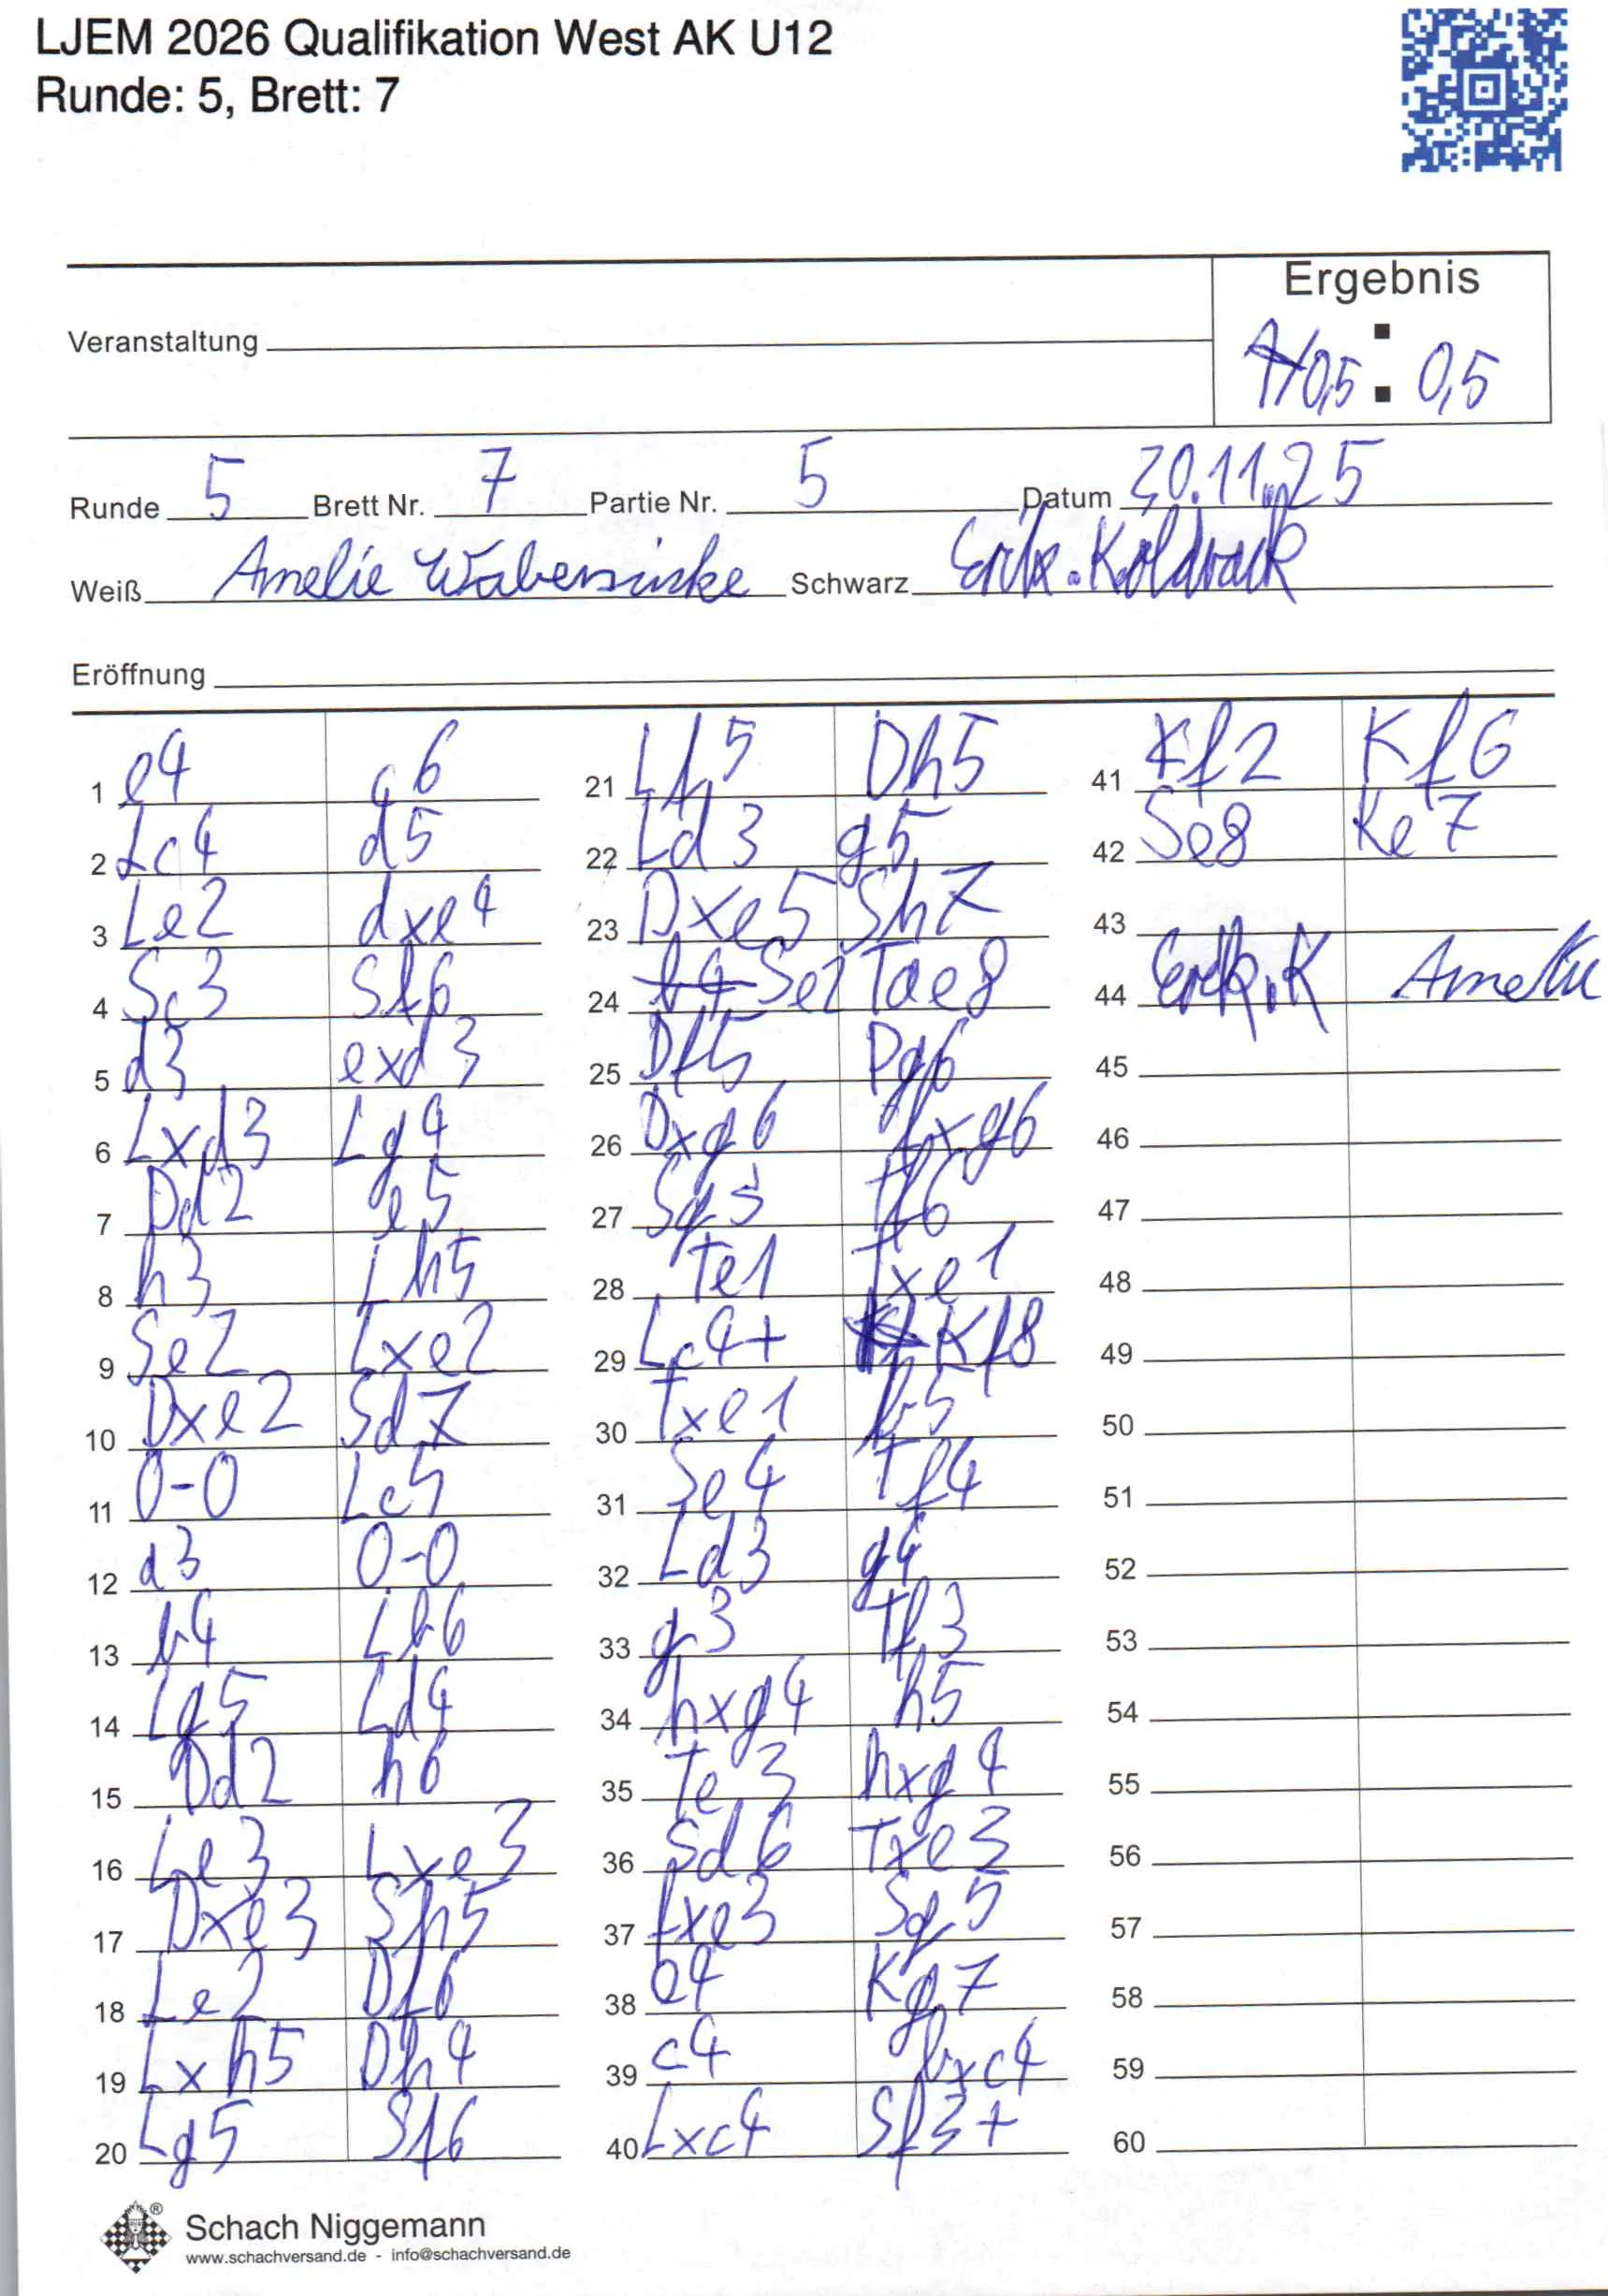 LJEM 2026 Qualifikation West AK U12
Runde: 5, Brett: 7
Ergebnis
Veranstaltung
0,5 : 0,5
Runde 5 Brett Nr. 7 Partie Nr. 5 Datum 30.11.25
Weiß Amelie Schwarz
Eröffnung
1 e4 c6
2 Lc4 d5
3 Le2 dxe4
4 Sc3 Sf6
5 d3 exd3
6 Lxd3 Lg4
7 Dd2 e5
8 h3 Lh5
9 Se2 Lxe2
10 Dxe2 Sd7
11 0-0 Lc5
12 a3 0-0
13 b4 Lb6
14 Lg5 Ld4
15 Dd2 h6
16 Le3 Lxe3
17 Dxe3 Sh5
18 Le2 Df6
19 Lxh5 Dh4
20 Lg5 Sf6
21 Lf5 Dh5
22 Ld3 g5
23 Dxe5 Sh7
24 Se2 Tae8
25 Df5 Dg6
26 Dxg6 fxg6
27 Sg3 Tf6
28 Te1 Txe1
29 Lc4+ Kf8
30 Txe1 b5
31 Se4 Tf4
32 Ld3 g4
33 g3 Tf3
34 hxg4 h5
35 Te3 hxg4
36 Sd6 Txe3
37 fxe3 Sg5
38 e4 Kg7
39 c4 bxc4
40 Lxc4 Sf3+
41 Kf2 Kf6
42 Se8 Ke7
43
44 Amelie
45
46
47
48
49
50
51
52
53
54
55
56
57
58
59
60
Schach Niggemann
www.schachversand.de - info@schachversand.de